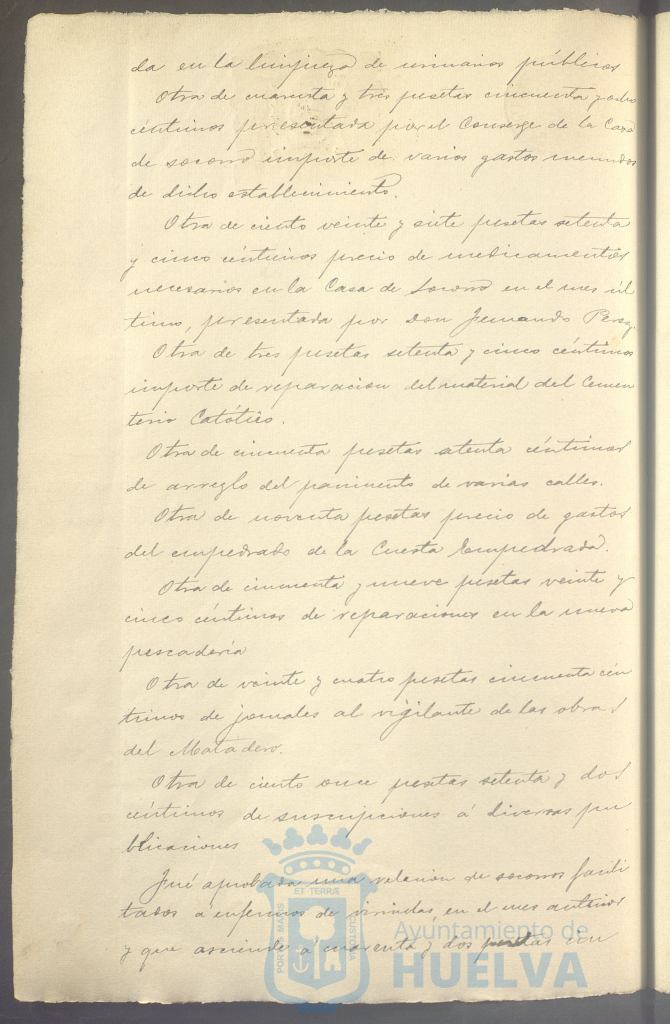 da en la limpieza de urinarios públicos
Otra de cuarenta y tres pesetas cincuenta y ocho
céntimos presentada por el Conserge de la Casa
de socorro importe de varios gastos menudos
de dicho establecimiento.
Otra de ciento veinte y siete pesetas setenta
y cinco céntimos precio de medicamentos
necesarios en la Casa de Socorro en el mes úl
timo, presentada por Don Fernando Perez,
Otra de tres pesetas setenta y cinco céntimos
importe de reparacion del material del Cemen
terio Católico.
Otra de cincuenta pesetas setenta céntimos
de arreglo del pavimento de varias calles.
Otra de noventa pesetas precio de gastos
del empedrado de la Cuesta Empedrada.
Otra de cincuenta y nueve pesetas veinte y
cinco céntimos de reparaciones en la nueva
pescadería
Otra de veinte y cuatro pesetas cincuenta cén
timos de jornales al vigilante de las obras
del Matadero.
Otra de ciento once pesetas setenta y dos
céntimos de suscripciones á diversas pu
blicaciones
Fué aprobada una relación de socorros facili
tados á enfermos de viruelas, en el mes anterior
y que asciende á cuarenta y dos pesetas cin
PORTUS MARIS ET TERRÆ CUSTODIA
Ayuntamiento de
HUELVA